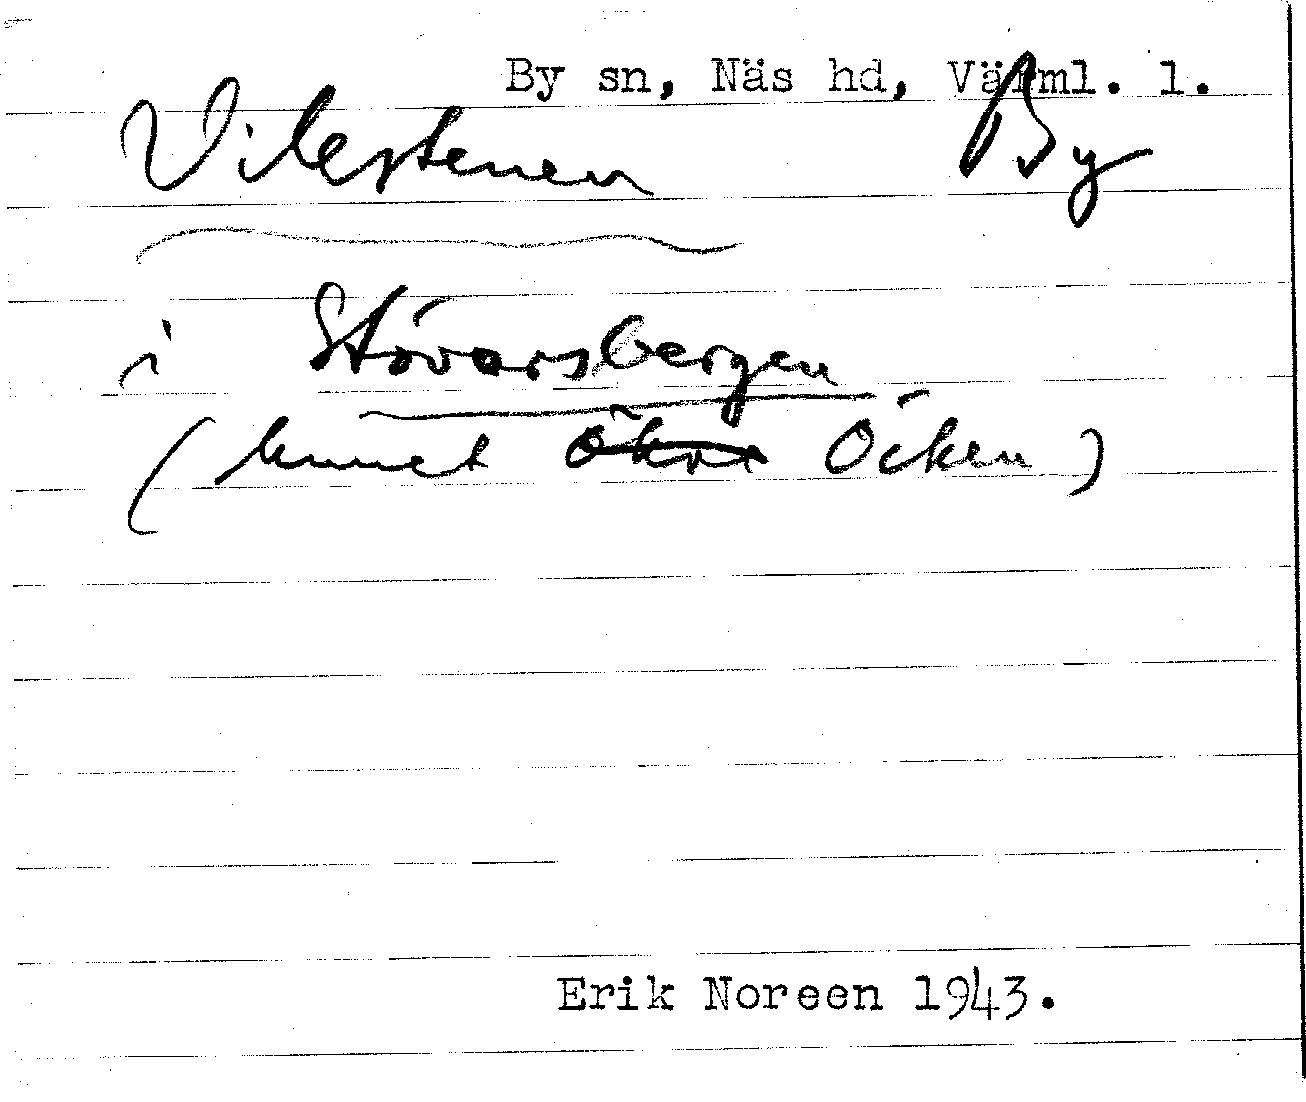 By sn, Näs hd, Värml. l.
Vilestenen By
i Stövarsbergen
(hunnet Öcken)
Erik Noreen 1943.